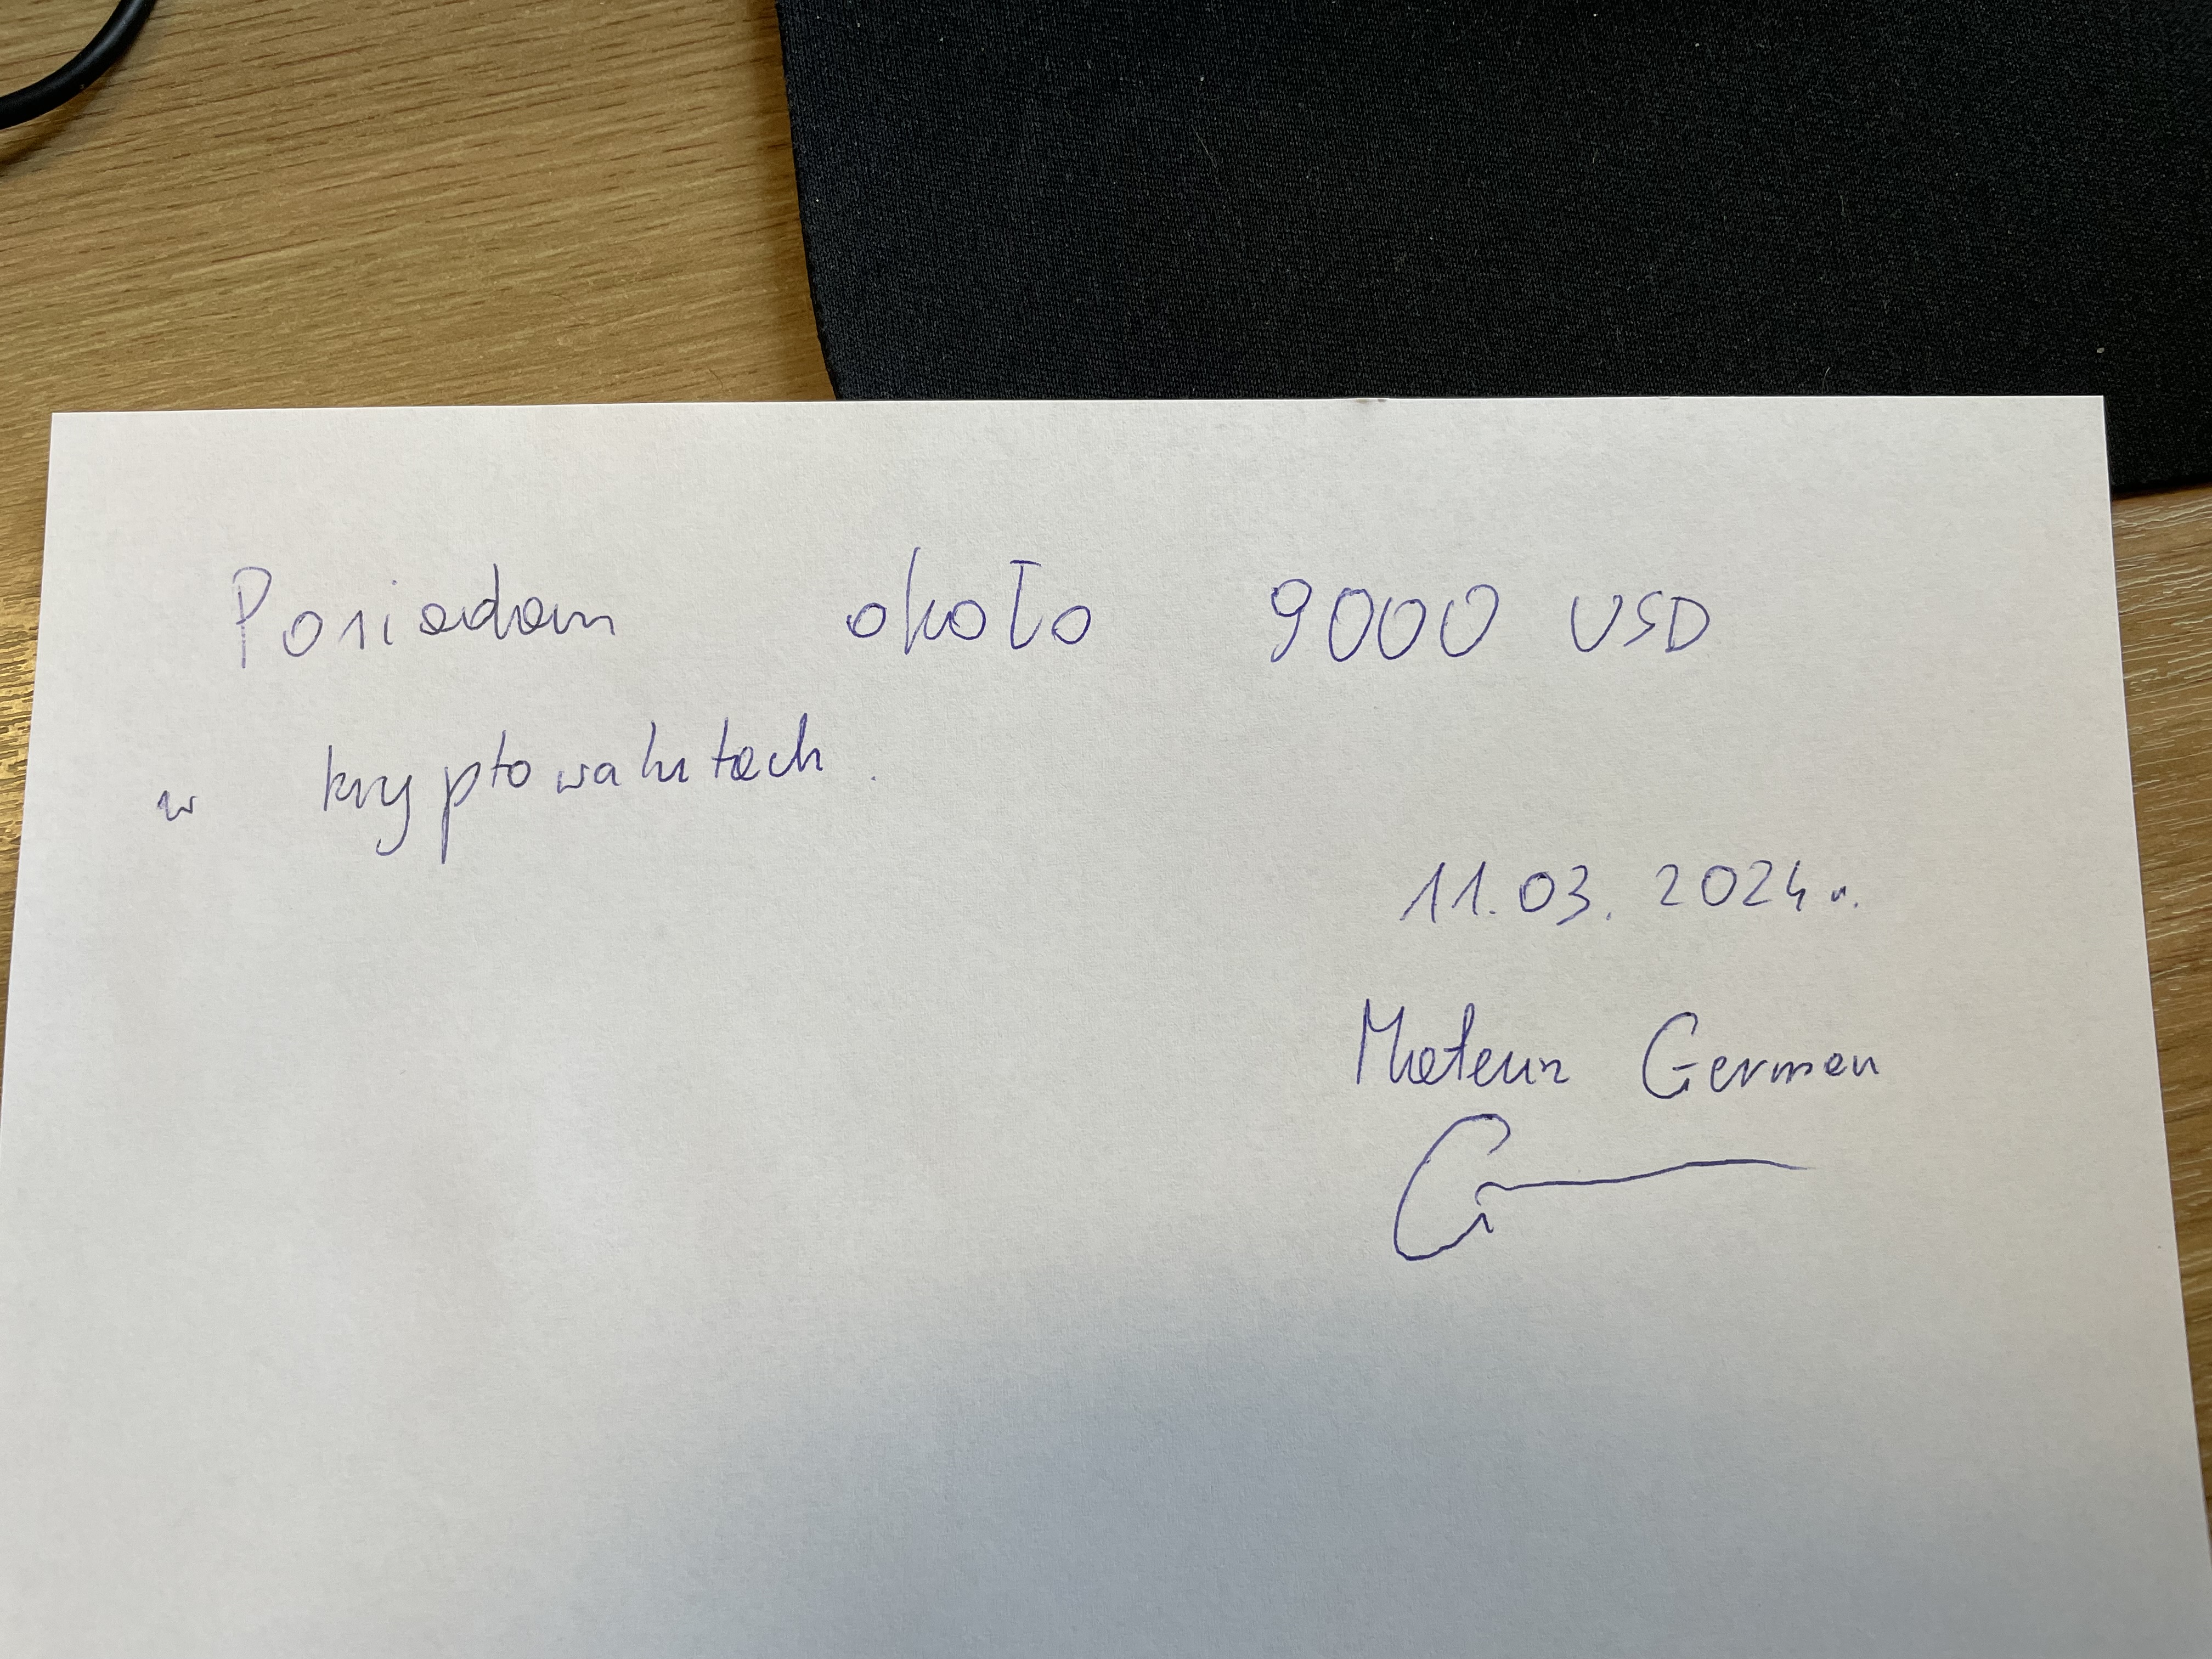 Posiadam około 9000 USD
w kryptowalutach.
11.03.2024 r.
German